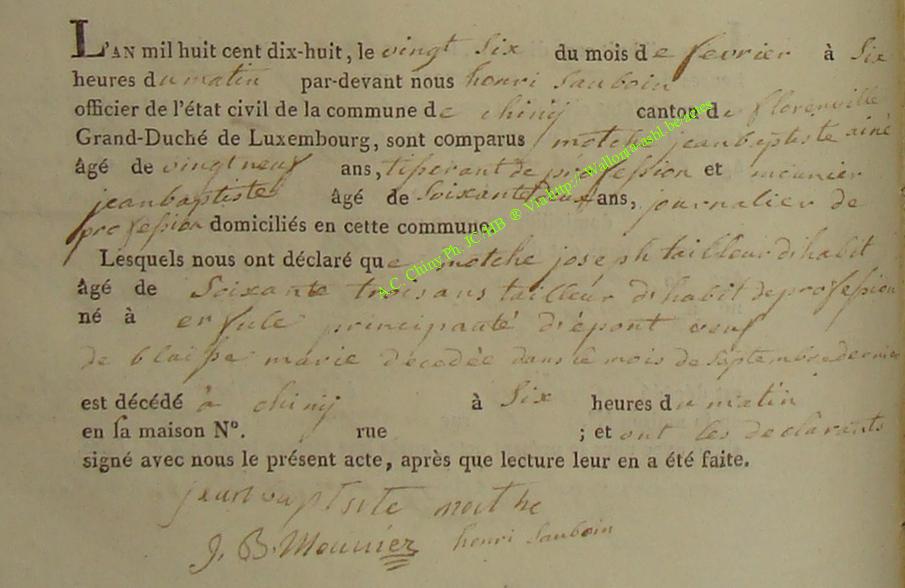 L'AN mil huit cent dix-huit, le vingt six du mois de fevrier à six
heures du matin par-devant nous henri Sauboin
officier de l'état civil de la commune de chinij canton de florenville
Grand-Duché de Luxembourg, sont comparus motche jeanbaptiste ainé
âgé de vingt neuf ans, tisserant de profession et meunier
jeanbaptiste âgé de Soixante deux ans, journalier de
profession domiciliés en cette commune.
Lesquels nous ont déclaré que motche joseph tailleur dhabit
âgé de Soixante trois ans tailleur dhabit de profession
né à principauté veuf
de blaisse marie décedée dans le mois de Septembre dernier
est décédé à chinij à Six heures du matin
en sa maison N°. rue ; et ont les declarants
signé avec nous le présent acte, après que lecture leur en a été faite.
jean baptsite mothe
J. B. Meunier henri Sauboin
A.C. Chiny Ph. JC HB ® Via http://wallonia-asbl.be/gites